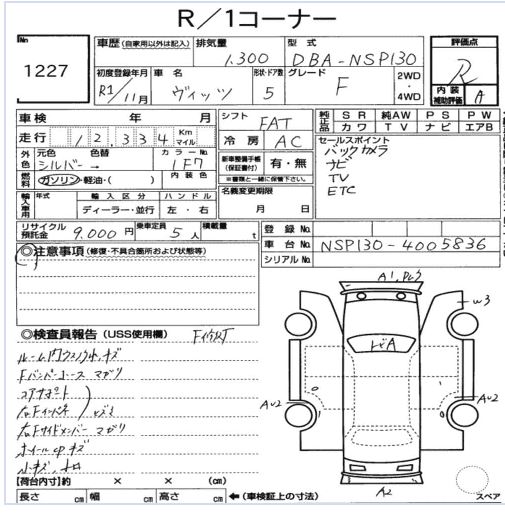 R／1コーナー
No
1227
車歴 (自家用以外は記入) 排気量 1,300 型式 DBA-NSP130
評価点 R
内装補助評価 A
初度登録年月 R1/11月 車名 ヴィッツ 形状・ドア数 5 グレード F 2WD ・4WD
車検 年 月
シフト FAT
純正品 SR 純AW PS PW
カワ TV ナビ エアB
走行 12,334 Km マイル
冷房 AC
セールスポイント
バックカメラ
ナビ
TV
ETC
外色 元色 シルバー 色替 → カラーNo 1F7
燃料 ガソリン・軽油・( ) 内装色
新車整備手帳 (保証書付) 有・無
※書類と一緒に保管下さい。
輸入車用 年式 輸入区分 ハンドル
ディーラー・並行 左・右
名義変更期限
月 日
リサイクル預託金 9,000円 乗車定員 5人 積載量 t
登録No
車台No NSP130-4005836
シリアルNo
◎注意事項 (修復・不具合箇所および状態等)
A1,
W3
AU2
AU2
A2
◎検査員報告 (USS使用欄)
コアサポート
右Fサイドメンバー マガリ
ホイールcpキズ
小キズ,
【荷台内寸】約 × × (cm)
長さ cm 幅 cm 高さ cm ←(車検証上の寸法)
スペア